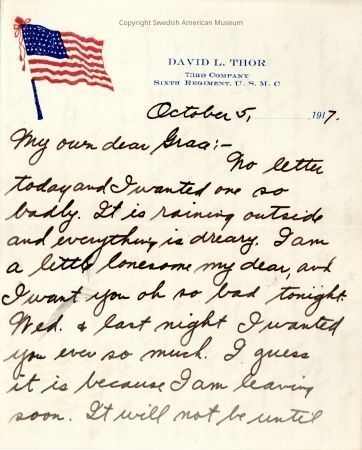 Copyright Swedish American Museum
DAVID L. THOR
73RD COMPANY
SIXTH REGIMENT, U. S. M. C
October 5, 1917.
My own dear Grace:-
No letter
today and I wanted one so
badly. It is raining outside
and everything is dreary. I am
a little lonesome my dear, and
I want you oh so bad tonight.
Wed. & last night I wanted
you ever so much. I guess
it is because I am leaving
soon. It will not be until